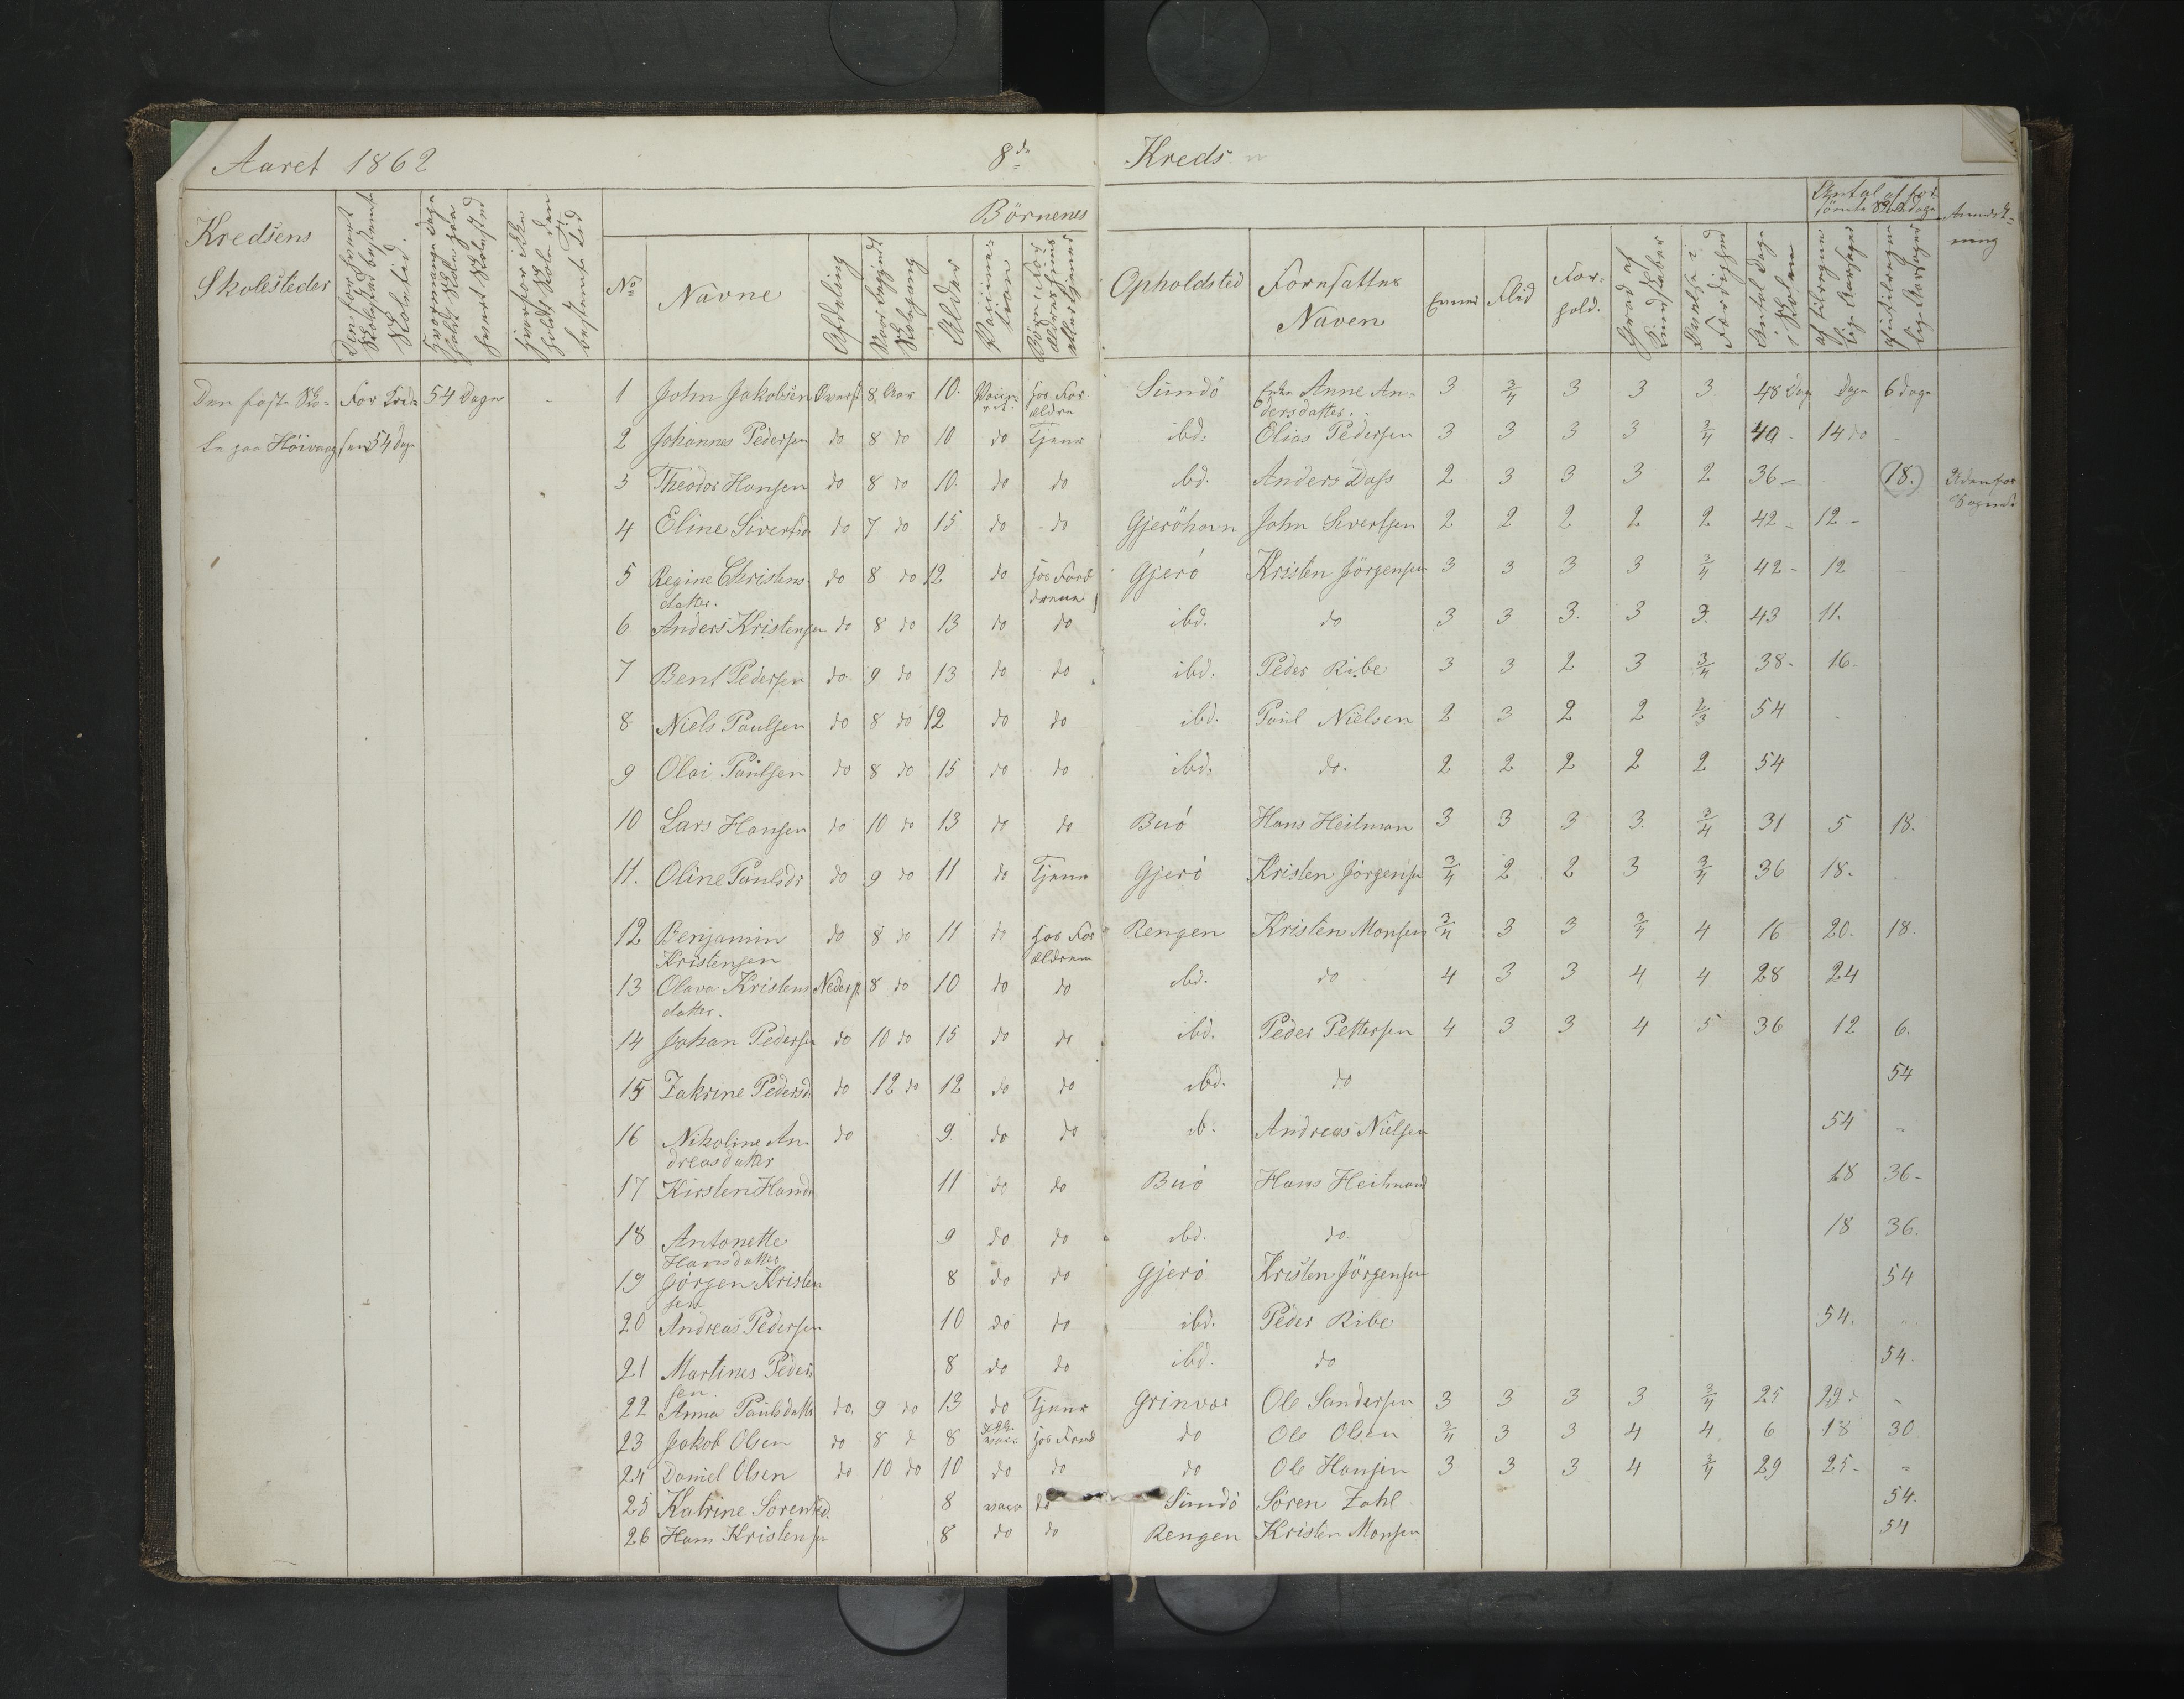 Aaret 1862 8de Kreds
Börnenes
Kredsens Skolesteder
Den for hvert Skolested bestemte Skoletid.
Hvormange Dage holdt Skole paa hvert Skolested
Hvorfor ikke holdt Skole den bestemte Tid
No
Navne
Afdeling
Naar begyndt Skolegang
Alder
Vaccination
Opholdsted
Navn
Evner
Flid
Forhold.
Grad af Kundskaber
Antal Dage i Skolen
Antal af forsömte Skoledage
Anmærkning
Den faste Skole paa Höivaag 54 Dage 54 Dager -
1 John Jakobsen Överst 8 Aar 10. hos Forældre Sundö Enke Anne Andersdatter. 3 3/4 3 3 3 48 Dag Dage 6 dage
2 Johannes Pedersen do 8 do 10 do Tjener ibd. Elias Pedersen 3 3 3 3 3/4 40 - 14 do -
3 Theodor Hansen do 8 do 10 do do ibd. Anders Dass 2 3 3 3 2 36 - (18.) Udenfor Sognet
4 Eline Sivertsd do 7 do 15 do do Gjeröhavn John Sivertsen 2 2 2 2 2 42 - 12 -
5 Regine Christensdatter. do 8 do 12 do Gjerö Kristen Jörgensen 3 3 3 3 3/4 42 - 12 -
6 Anders Kristensen do 8 do 13 do do ibd. do 3 3 3. 3 3. 43 11.
7 Bent Pedersen do 9 do 13 do do ibd. Peder Ribe 3 3 2 3 3/4 38 - 16.
8 Niels Paulsen do 8 do 12 do do ibd. Paul Nielsen 2 3 2 2 2/3 54 -
9 Olai Paulsen do 8 do 15 do do ibd. do. 2 2 2 2 2 54
10 Lars Hansen do 10 do 13 do do Buö Hans Heitman 3 3 3 3 3/4 31 5 18.
11. Oline Paulsdr do 9 do 11 do Tjener Gjerö Kristen Jörgensen 3/4 2 2 3 3/4 36 18.
12 Benjamin Kristensen do 8 do 11 do hos Forældrene Rengen Kristen Monsen 3/4 3 3 3/4 4 16 20. 18.
13 Olava Kristensdatter. Nederst 8 do 10 do do ibd. do 4 3 3 4 4 28 24
14 Johan Pedersen do 10 do 15 do do ibd. Peder Pettersen 4 3 3 4 5 36 12 6.
15 Zakrine Pedersd do 12 do 12 do do ibd. do 54
16 Nikoline Andreasdatter do 9. do do ib. Andreas Nielsen 54 -
17 Kirsten Hansd 11 do do Buö Hans Heitmand 18 36 -
18 Antonette Hansdatter 9 do do ibd. do 18 36.
19 Jörgen Kristensen 8 do do Gjerö Kristen Jörgensen 54
20 Andreas Pedersen 10 do do ibd. Peder Ribe 54.
21 Martines Pedersen. 8 do do ibd. do 54.
22 Anna Paulsdatter do. 9 do 13 do Tjener Grinvær Ole Sandersen 3 3 3 3 3/4 25 29 -
23 Jakob Olsen do 8 d 8 do Ole Olsen 3/4 3 3 4 4 6 18 30
24 Daniel Olsen do 10 do 10 do do do Ole Hansen 3 3 3 4 3/4 29 25 - -
25 Katrine Sörensd. 8 do Sundö Sören Zahl 54.
26 Hans Kristensen 8 do do Rengen Kristen Monsen 54